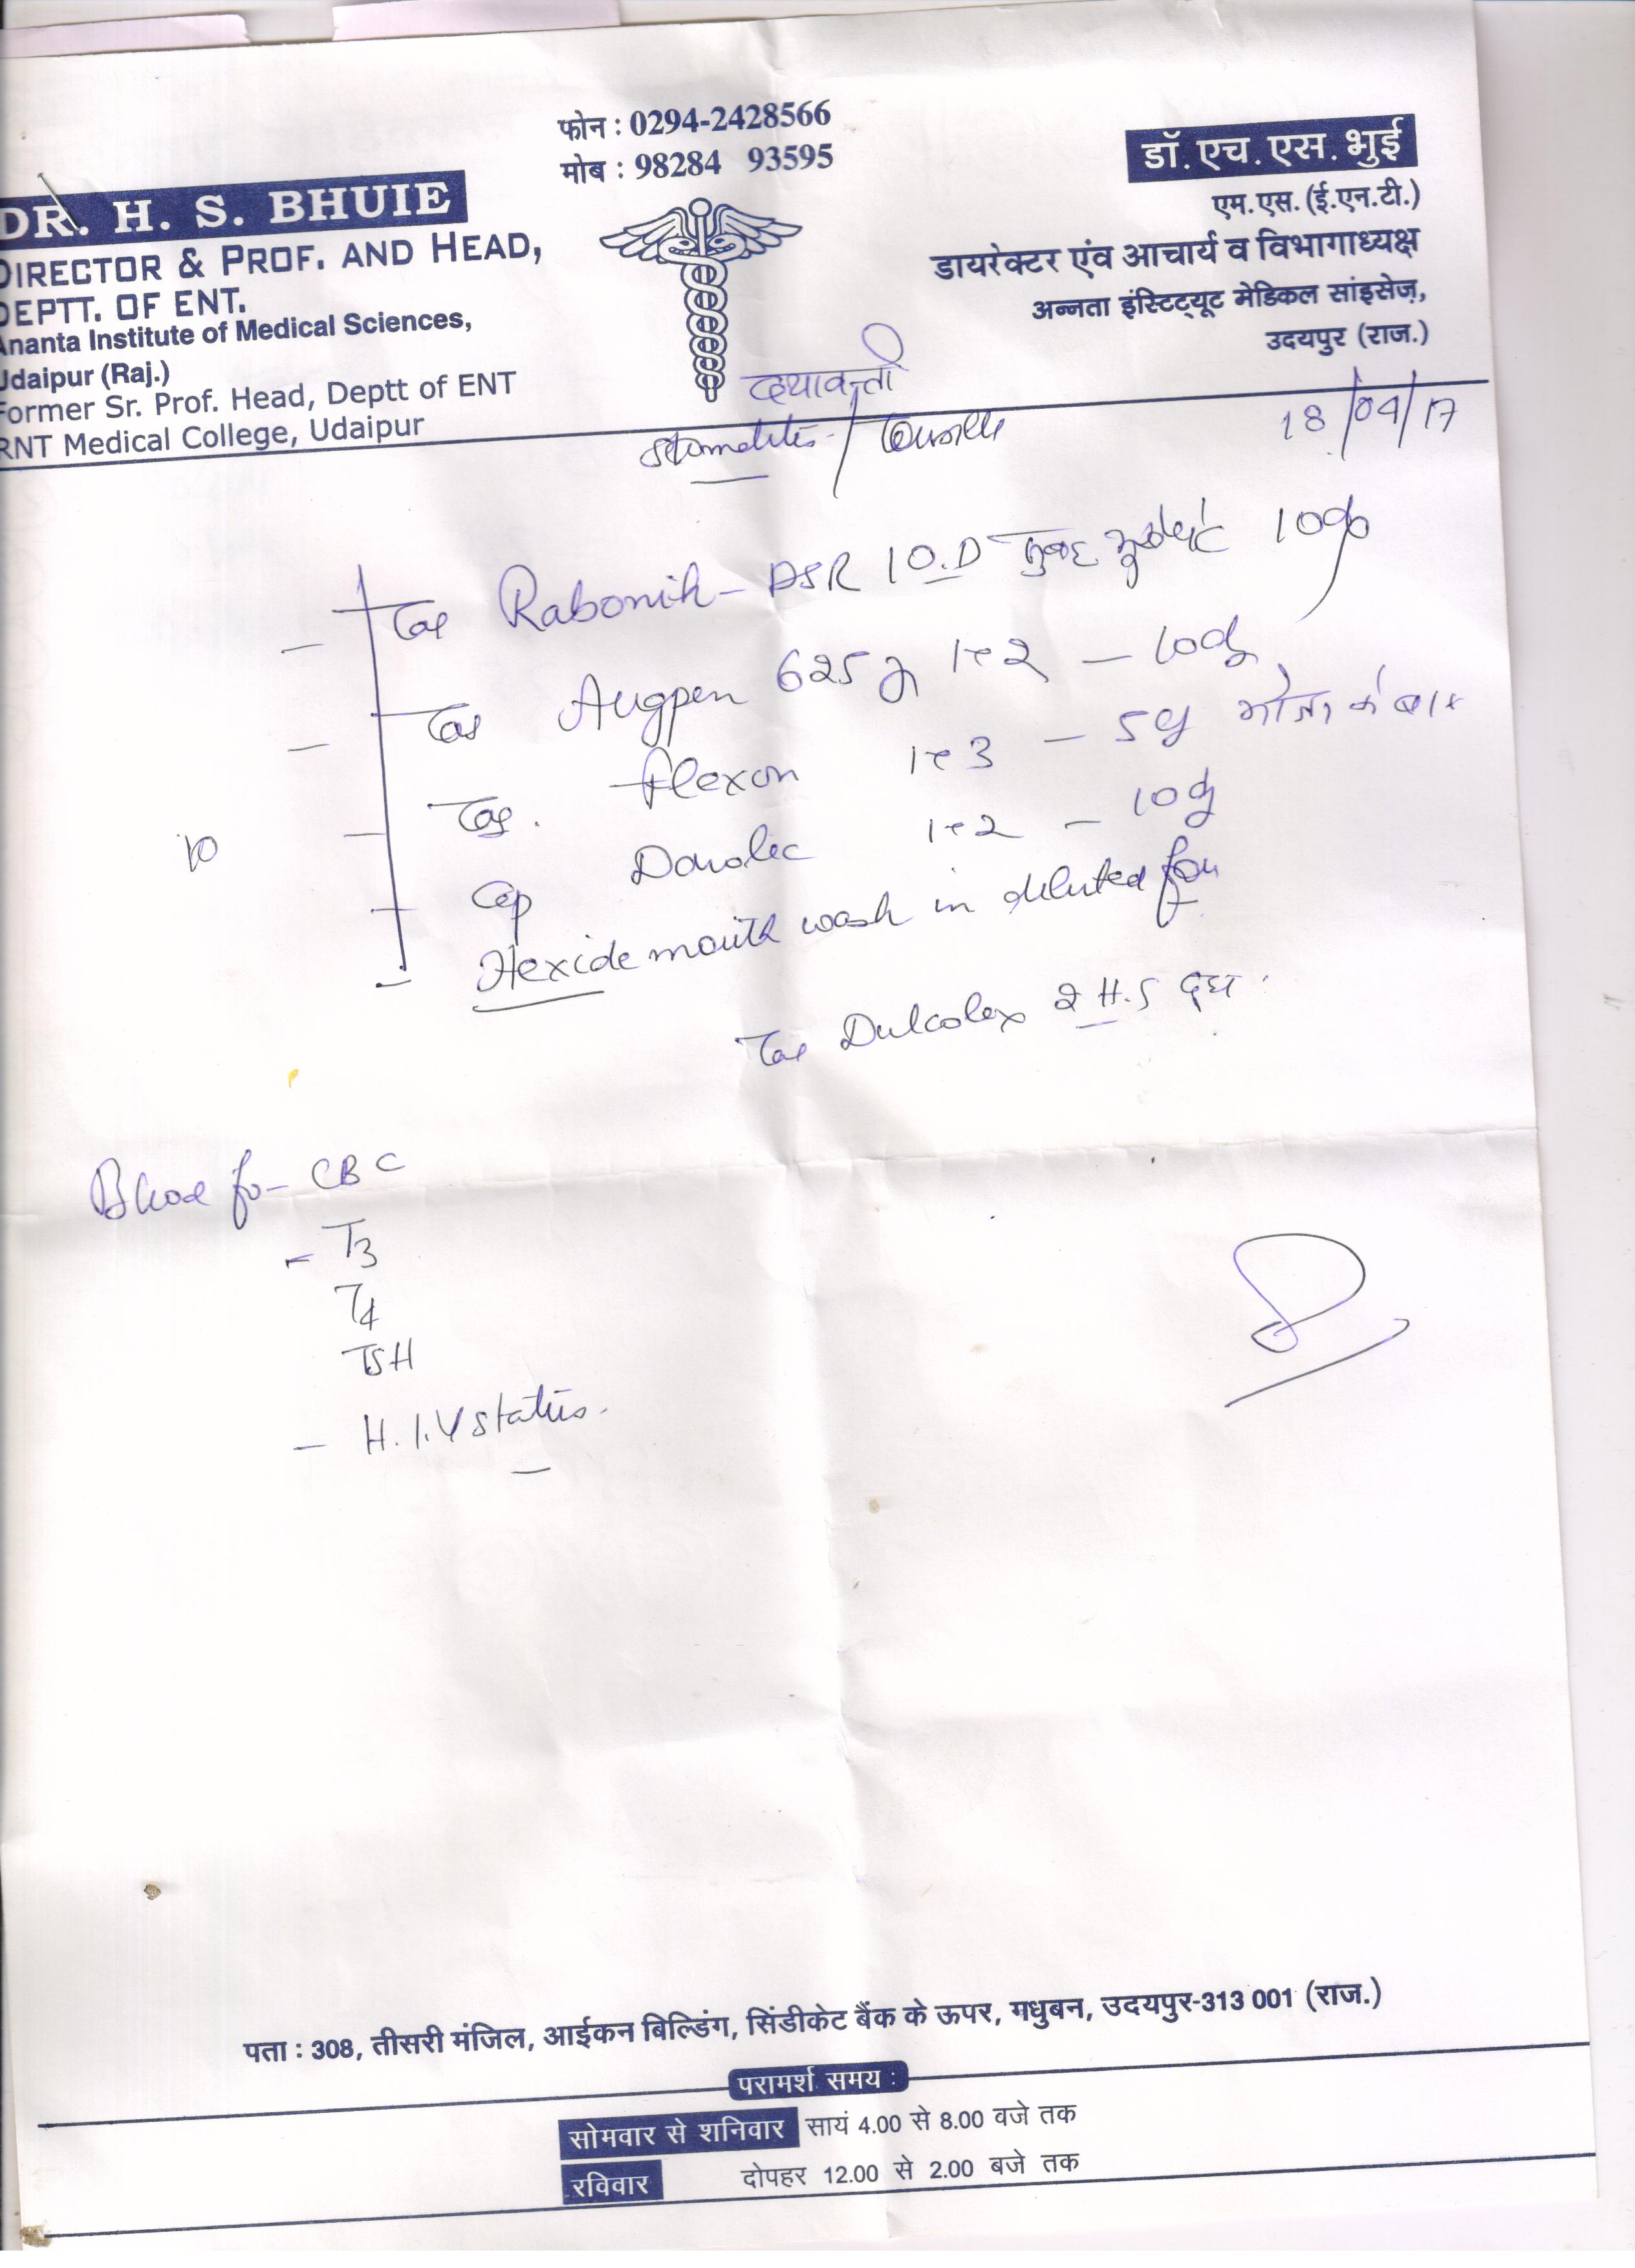 फोन : 0294-2428566
मोब : 98284 93595
DR. H. S. BHUIE
DIRECTOR & PROF. AND HEAD,
DEPTT. OF ENT.
Ananta Institute of Medical Sciences,
Udaipur (Raj.)
Former Sr. Prof. Head, Deptt of ENT
RNT Medical College, Udaipur
डॉ. एच. एस. भुई
एम.एस. (ई.एन.टी.)
डायरेक्टर एंव आचार्य व विभागाध्यक्ष
अन्नता इंस्टिट्यूट मेडिकल सांइसेज़,
उदयपुर (राज.)
दयावन्ती
18/04/17
Tab Rabonik - DSR 1 O.D सुबह भूखे पेट 10
Tab Augpen 625 1-2 -
Tab. flexon 1-3 - 5 भोजन के बाद
Cap 1-2 - 10
Hexide mouth wash in diluted form
Tab Dulcolex 2 H.S दूध
10
Blood for - CBC
- T3
T4
TSH
- H.I.V status.
पता : 308, तीसरी मंजिल, आईकन बिल्डिंग, सिंडीकेट बैंक के ऊपर, मधुबन, उदयपुर-313 001 (राज.)
परामर्श समय :
सोमवार से शनिवार सायं 4.00 से 8.00 वजे तक
रविवार दोपहर 12.00 से 2.00 बजे तक